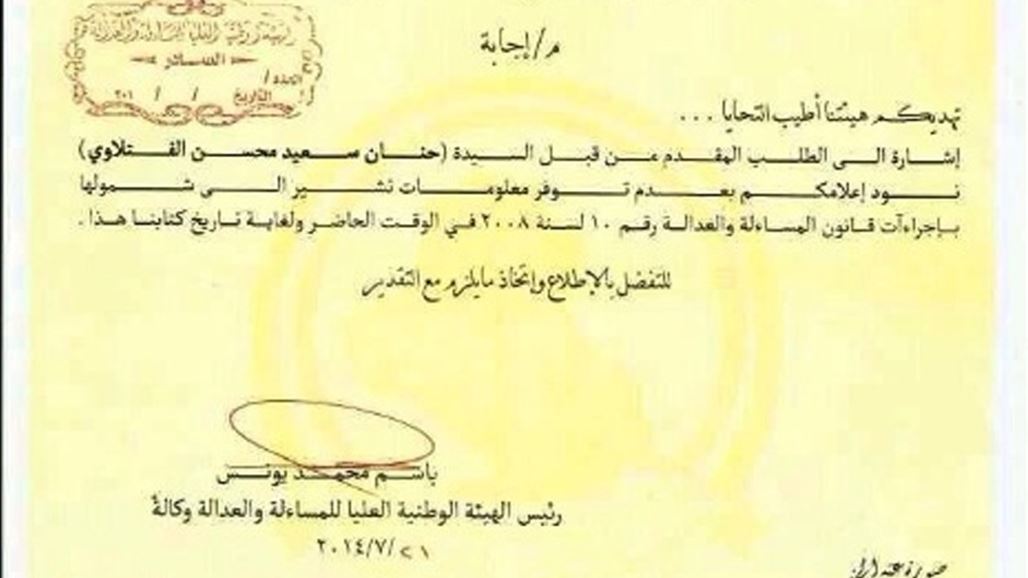 الهيئة الوطنية العليا للمساءلة والعدالة
الصادر
العدد /
التاريخ / / ٢٠١
م/إجابة
تهديكم هيئتنا أطيب التحايا ...
إشارة الى الطلب المقدم من قبل السيدة (حنان سعيد محسن الفتلاوي)
نود إعلامكم بعدم توفر معلومات تشير الى شمولها
بإجراءآت قانون المساءلة والعدالة رقم ١٠ لسنة ٢٠٠٨ في الوقت الحاضر ولغاية تاريخ كتابنا هذا .
للتفضل بالإطلاع وإتخاذ مايلزم مع التقدير
باسم محمد يونس
رئيس الهيئة الوطنية العليا للمساءلة والعدالة وكالةً
٢٠١٤/٧/٢١
صورة عنه الى